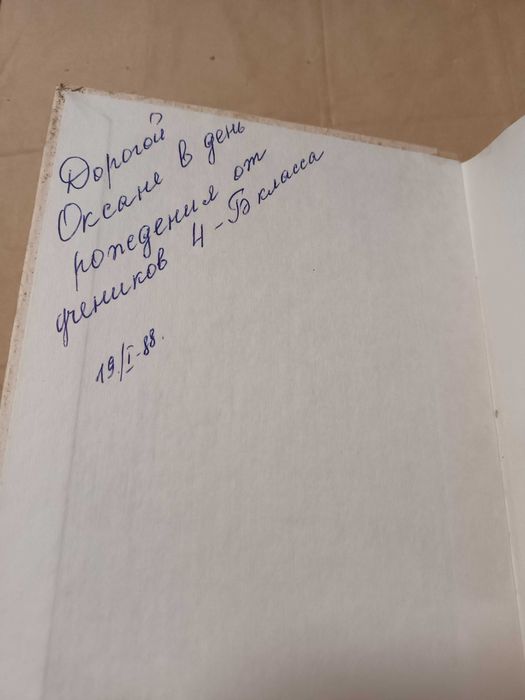 Дорогой
Оксане в день
рождения от
учеников 4-Б класса
19/I-88.